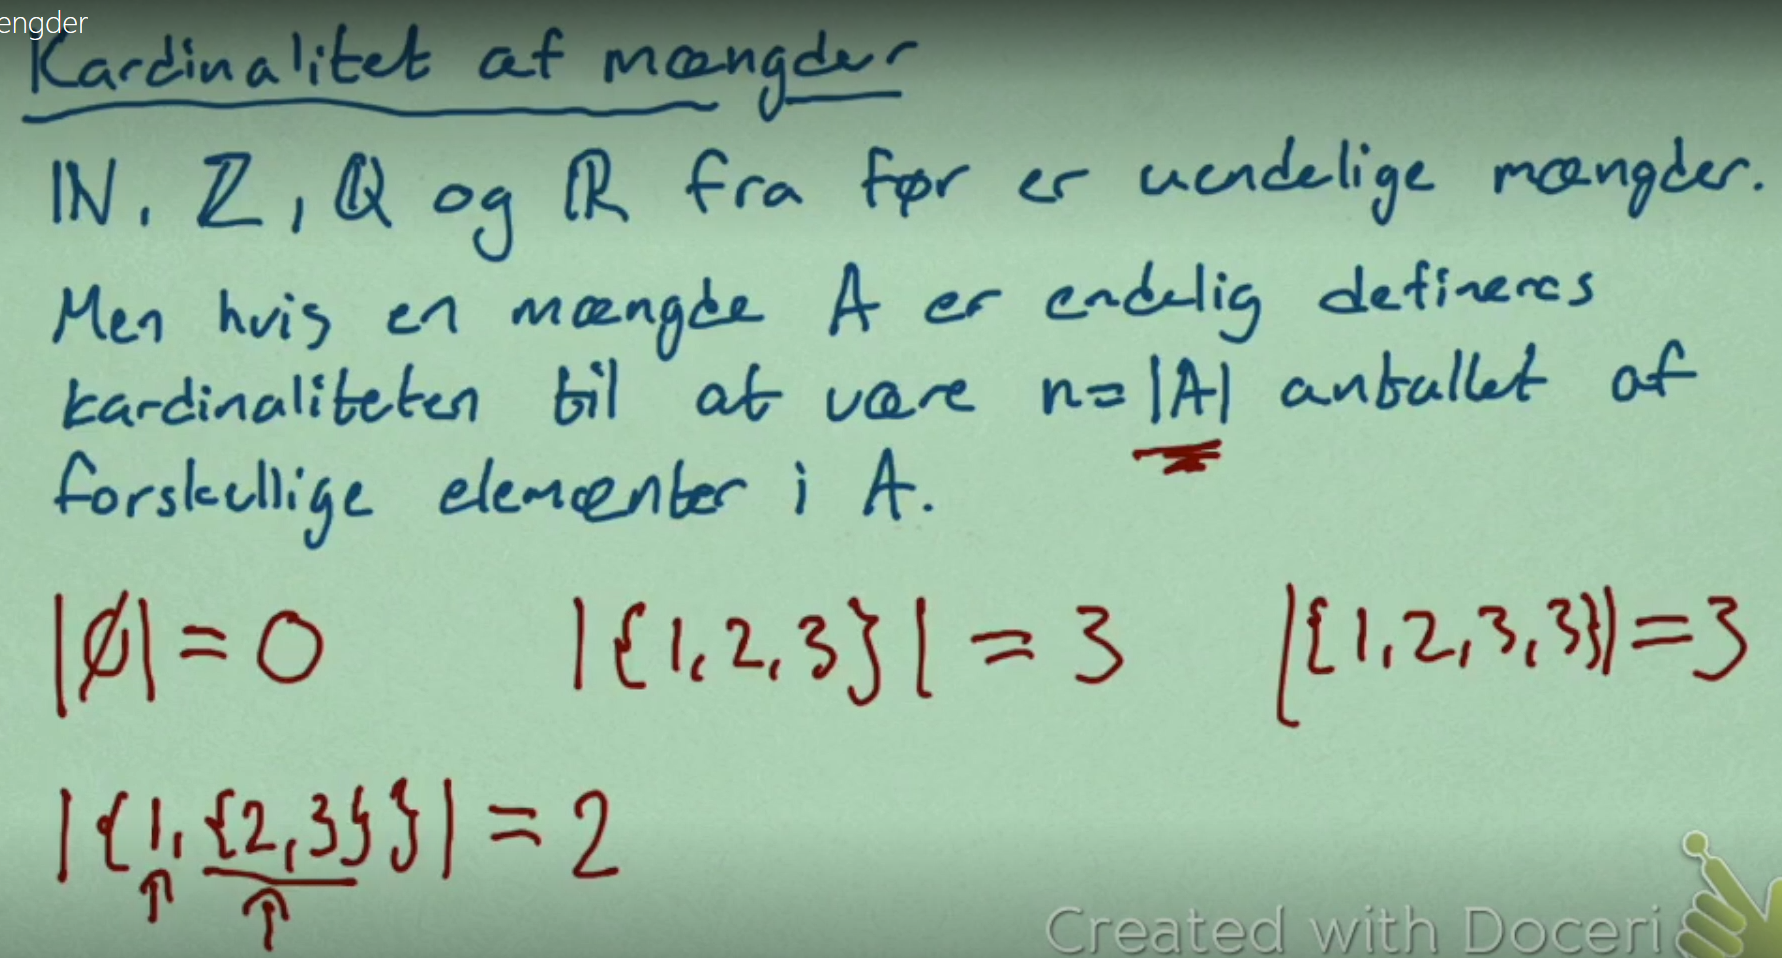 engder
Kardinalitet af mængder
ℕ, ℤ, ℚ og ℝ fra før er uendelige mængder.
Men hvis en mængde A er endelig defineres
kardinaliteten til at være n=|A| antallet af
forskellige elemænter i A.
|∅| = 0 |{1,2,3}| = 3 |{1,2,3,3}|=3
|{1,{2,3}}| = 2
Created with Doceri